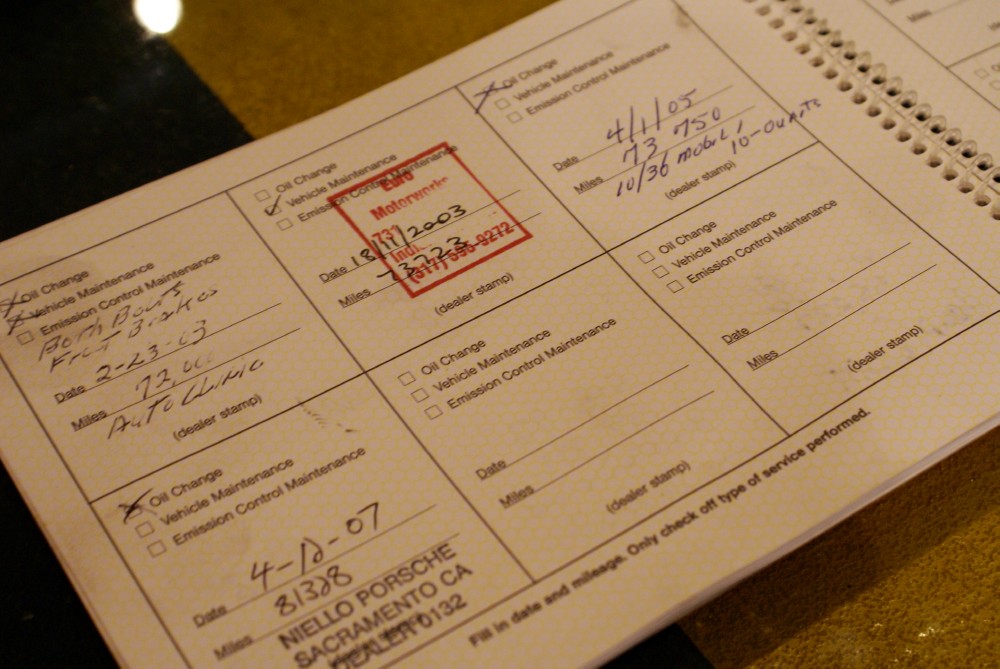 Oil Change
Vehicle Maintenance
Emission Control Maintenance
Both Boots
Frnt Brakes
Date 2-23-03
Miles 72,000
Auto Clinic
(dealer stamp)
Oil Change
Vehicle Maintenance
Emission Control Maintenance
Euro
Motorworks
731
Indi
Date 18/11/2003
Miles 73723
9272
(dealer stamp)
Oil Change
Vehicle Maintenance
Emission Control Maintenance
Date 4/1/05
Miles 73 750
10/30 mobil 1 10-Quarts
(dealer stamp)
Oil Change
Vehicle Maintenance
Emission Control Maintenance
Date 4-18-07
Miles 81328
NIELLO PORSCHE
SACRAMENTO CA
DEALER 0132
Oil Change
Vehicle Maintenance
Emission Control Maintenance
Date
Miles
(dealer stamp)
Oil Change
Vehicle Maintenance
Emission Control Maintenance
Date
Miles
(dealer stamp)
Fill in date and mileage. Only check off type of service performed.
Miles